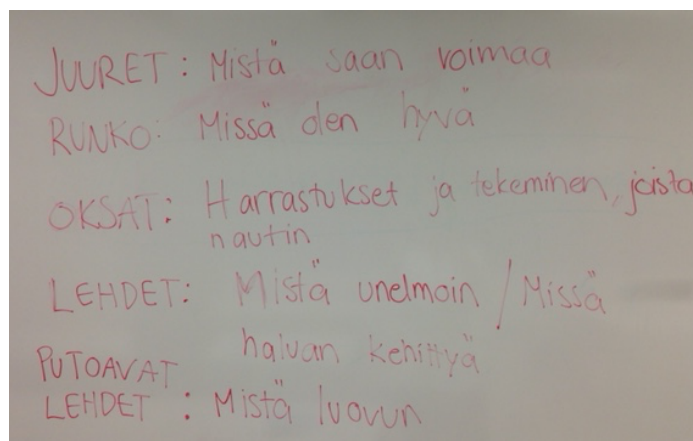 JUURET: Mistä saan voimaa
RUNKO: Missä olen hyvä
OKSAT: Harrastukset ja tekeminen, joista
nautin
LEHDET: Mistä unelmoin / Missä
haluan kehittyä
PUTOAVAT
LEHDET: Mistä luovun